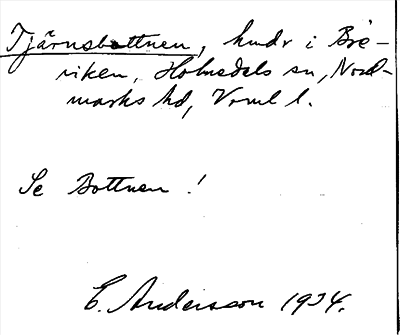 Tjärnsbottnen, hmdr i Bre-
viken, Holmedals sn, Nord-
marks hd, Vrml l.
Se Bottnen!
E. Andersson 1934.